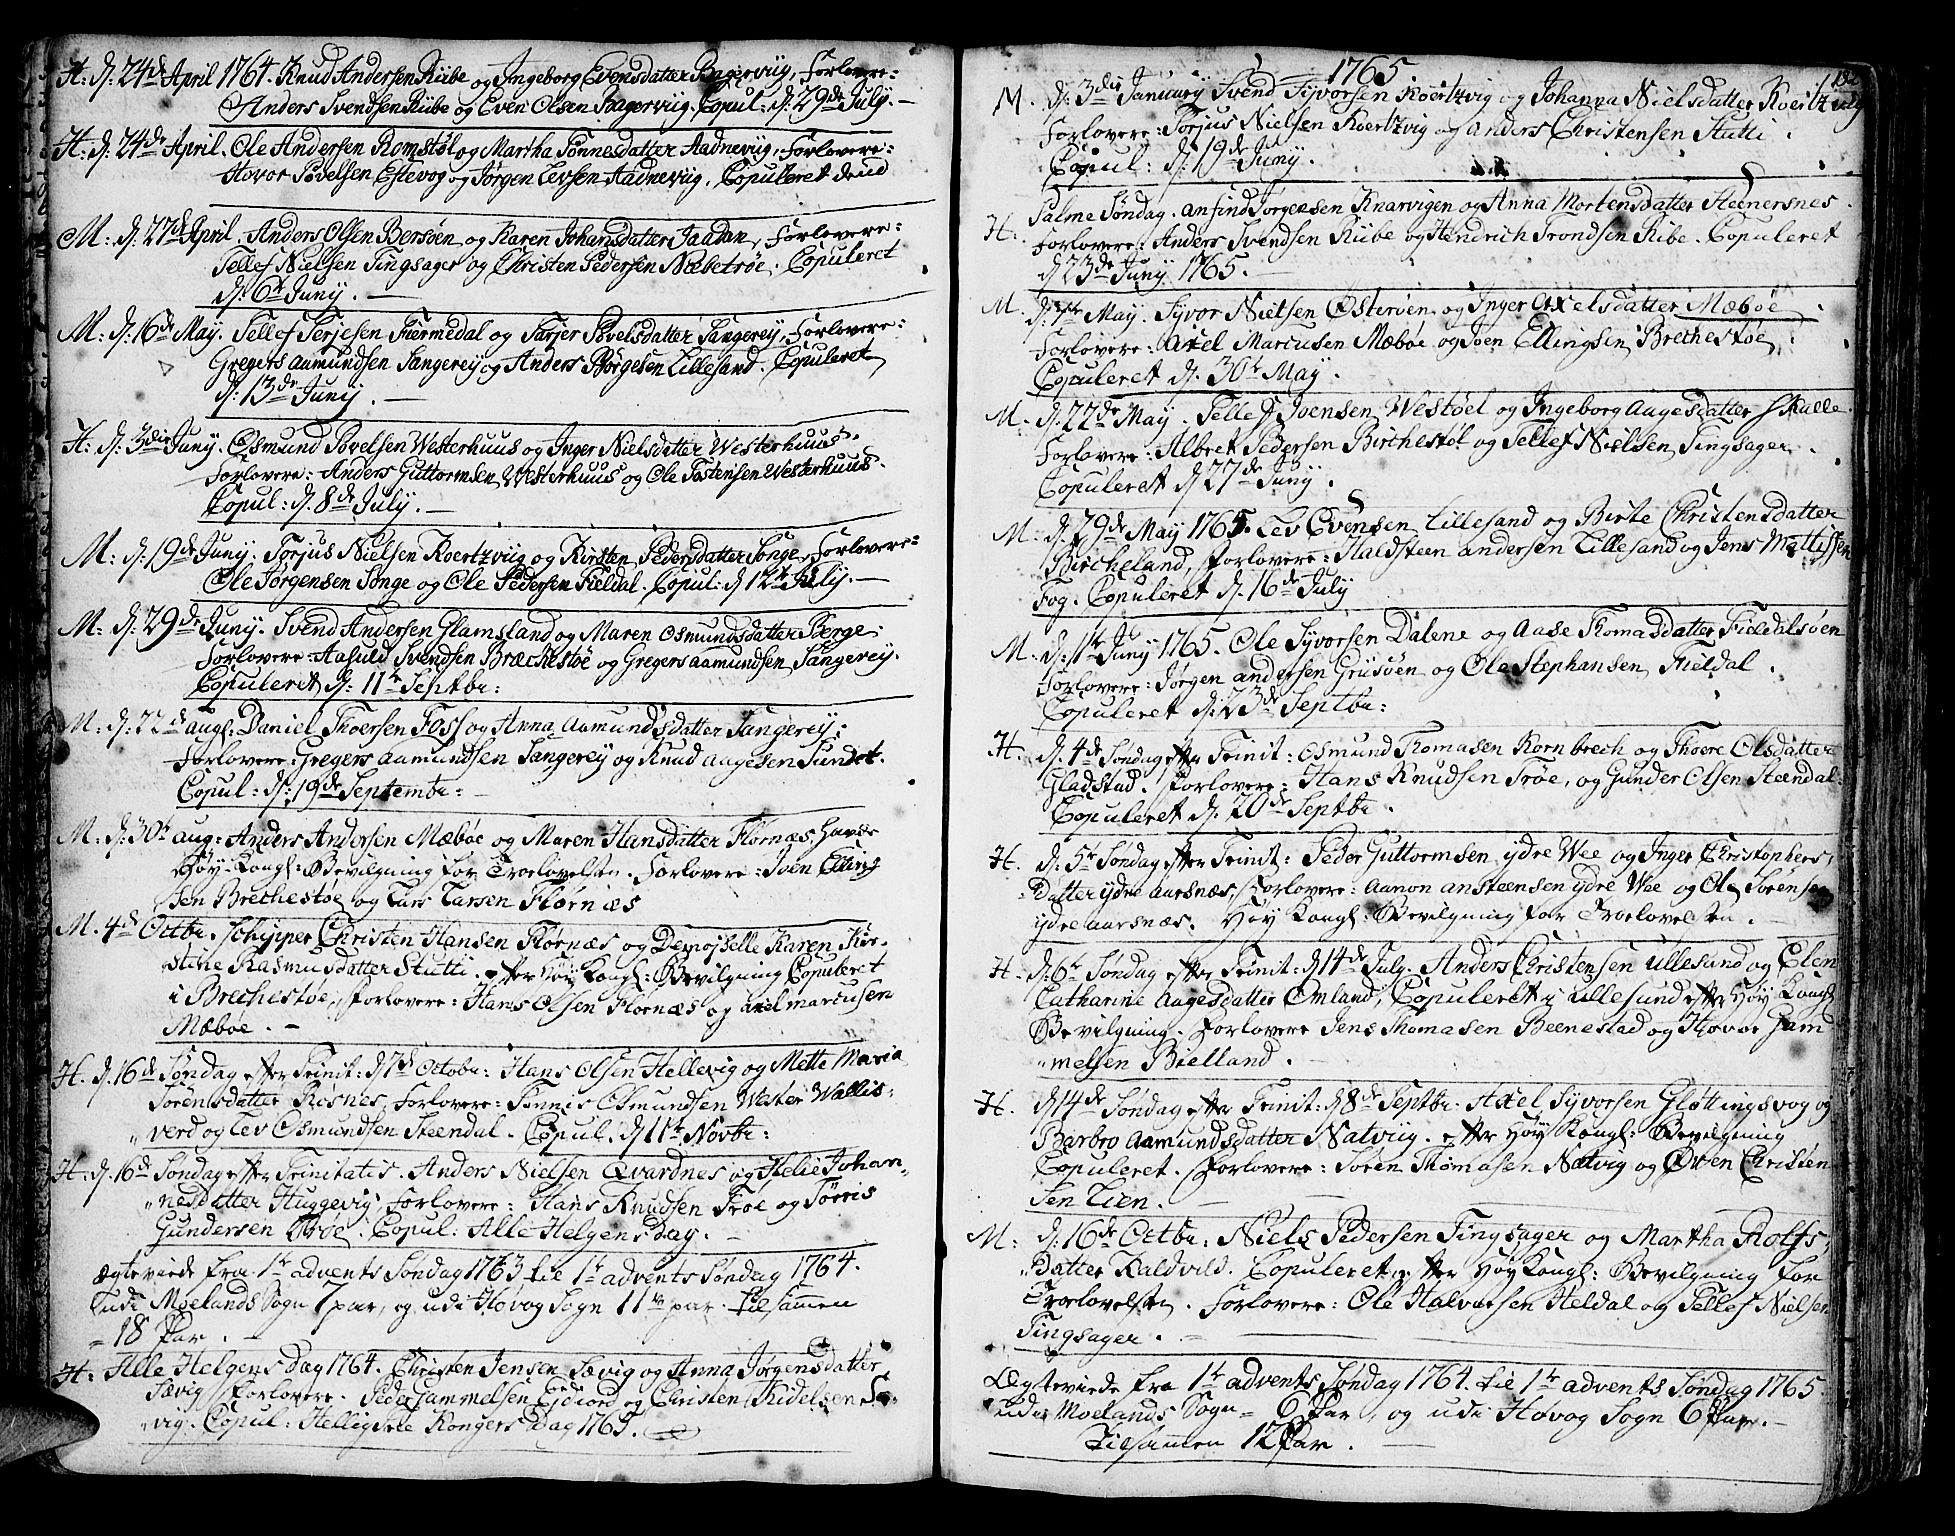 H. d. 24de April 1764. Knud Andersen Riibe og Ingeborg Evensdatter Bagerviig, Forlovere:
Anders Svendsen Riibe og Even Olsen Bagerviig. Copul: d: 29de July. —
H: d: 24de April. Ole Andersen Romstøl og Martha Tønnesdatter Aadneviig, Forlovere:
Hovor Povelsen Estevog og Jørgen Levsen Aadneviig. Copuleret
M: d: 27de April. Anders Olsen Bersøen og Karen Johansdatter Jaatan, Forlovere:
Tellef Nielsen Tingsager og Christen Pedersen Næbetrøe. Copuleret
d: 6te Juny. —
M: d: 16de May. Tellef Terjesen Fiermedal og Tarjer Povelsdatter Sangerey, Forlovere:
Gregers Aamundsen Sangerey og Anders Børgesen Lillesand. Copuleret
d: 13de Junij. —
H: d: 3die Juny. Osmund Povelsen Westerhuus og Inger Nielsdatter Westerhuus.
Forlovere: Anders Guttormsen Westerhuus og Ole Tostensen Westerhuus.
Copul: d. 8de July. —
M: d: 19de Juny. Torjus Nielsen Koertzviig og Kirsten Pedersdatter Songe, Forlovere:
Ole Jørgensen Songe og Ole Pedersen Fieldal. Copul: d 12te July. —
M: d: 29de Juny. Svend Andersen Glamsland og Maren Osmundsdatter Berge.
Forlovere: Aasuld Svendsen Bræchestøe og Gregers Aamundsen Sangerey.
Copuleret d: 11te Septbr:
M: d: 22de aug: Daniel Thoersen Foss og Anna Aamundsdatter Sangerey:
Forlovere: Gregers Aamundsen Sangerey og Knud Aagesen Sundet.
Copul: d: 19de Septembr: —
M: d: 30te aug: Anders Andersen Mæbøe og Maren Hansdatter Flørnæs, havde
Høy-Kongl: Bevilgning for Troelovelsen. Forlovere: Joen Elling
sen Brechestøe og Lars Larsen Flørnæs
M. 4de Octbr. schipper Christen Hansen Flørnæs og Demojselle Karen Kir-
stine Rasmusdatter Stutti. efter Høy Kongl: Bevilgning Copuleret
i Brechestøe, Forlovere: Hans Olsen Flørnæs og axel marcusen
Mæbøe. —
H. d. 16de Søndag efter Trinit: d 7de Octobr: Hans Olsen Hellevig og Mette Maria
Sørensdatter Rosnes, Forlovere: Tønnis Osmundsen Wester Wallis-
verd og Lev Osmundsen Steendal. Copul. d 11te Novbr:
H. d. 16de Søndag efter Trinitatis. Anders Nielsen Qvardnes og Helie Johan-
nesdatter Huggevig, Forlovere: Hans Knudsen Trøe og Tørris
Gundersen Trøe. Copul: Alle Helgens Dag. —
Ægteviede fra 1te advents Søndag 1763 til 1te advents Søndag 1764.
Tudi Moelands Sogn 7 par, og udi Høvog Sogn 11 par. tilsammen
= 18 Par. —
H: Alle Helgens Dag 1764. Christen Jensen Sævig og Anna Jørgensdatter
Sævig, Forlovere. Peder Gammelsen Eidiord og Christen Kidelsen Sæ-
vig. Copul: Hellig Kongers Dag 1765.
1765
M. d: 3die January Svend Syvorsen Koertzvig og Johanna Nielsdatter Koertzvig
Forlovere: Torjus Nielsen Koertzvig og Anders Christensen Stutti.
Copul: d: 19de Juny.
H. Palme Søndag. Anfind Jørgensen Knarvigen og Anna Mortensdatter Steinersnes.
Forlovere: Anders Svendsen Riibe og Hendrich Trondsen Ribe. Copuleret
d 23de Juny 1765. —
M. d: 7de May. Syvor Nielsen Østerøen og Inger Axelsdatter Mæbøe
Forlovere: Axel Marcusen Mæbøe og Joen Ellingsen Brechestøe
Copuleret d. 30te May.
M. d. 22de May. Tellef Joensen Westøel og Ingeborg Aagesdatter Skalle.
Forlovere: Albret Pedersen Birchestøl og Tellef Nielsen Tingsager.
Copuleret d 27de Juny.
M. d. 29de May 1765. Lev Evensen Lillesand og Birte Christensdatter
Bircheland, Forlovere: Haldsteen Andersen Lillesand og Jens Mattissen
Fog. Copuleret d. 16de July
M. d: 1te Juny 1765. Ole Syvorsen Dalene og Aase Thomasdatter Fieldalsøen
Forlovere: Jørgen andersen Grusøen og Ole Stephansen Fieldal.
Copuleret d: 23de Septbr:
H. d. 4de Søndag efter Trinit: Osmund Thomasen Kornbrech og Thore Olsdatter
Gladstad. Forlovere: Hans Knudsen Trøe, og Gunder Olsen Steendal:
Copuleret d. 20de Septbr.
H. d. 5te Søndag efter Trinit: Peder Guttormsen ydre Wee og Inger Christophers-
datter ydre Aarsnæs, Forlovere: Aanon Ansteensen ydre Wee og Ole Sørensen
ydre Aarsnæs. Høy Kongl: Bevilgning for Troelovelsen. —
H. d. 6te Søndag efter Trinit: d 14de July. Anders Christensen Lillesand og Elen
Catharine Aagesdatter Omland, Copuleret i Lillesand efter Høy Kongl
Bevilgning. Forlovere Jens Thomasen Beenestad og Hovor Gam
melsen Bielland. —
H. d 14de Søndag efter Trinit: d 8de Septbr. Axel Syvorsen Gløttingsvog og
Barbro Aamundsdatter Natviig. efter Høy Kongl: Bevilgning
Copuleret. Forlovere: Søren Thomasen Natvig og Øven Christen
sen Lien.
M: d. 16de Octbr: Niels Pedersen Tingsager og Martha Rolfs-
datter Kaldvild. Copuleret efter Høy Kongl: Bevilgning for
Troelovelsen. Forlovere: Ole Halvorsen Heldal og Tellef Nielsen
Tingsager. —
Ægteviede fra 1te advents Søndag 1764. til 1te advents Søndag 1765.
udi Moelands Sogn = 6 Par, og udi Høvog Sogn 6 Par. —
Tilsammen 12 Par. —